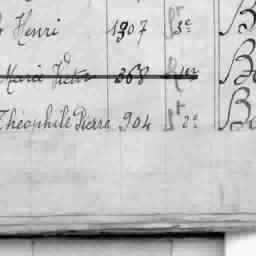 Henri 1907 3e B
Marie Victor 368 1er B
Théophile Pierre 904 2e B